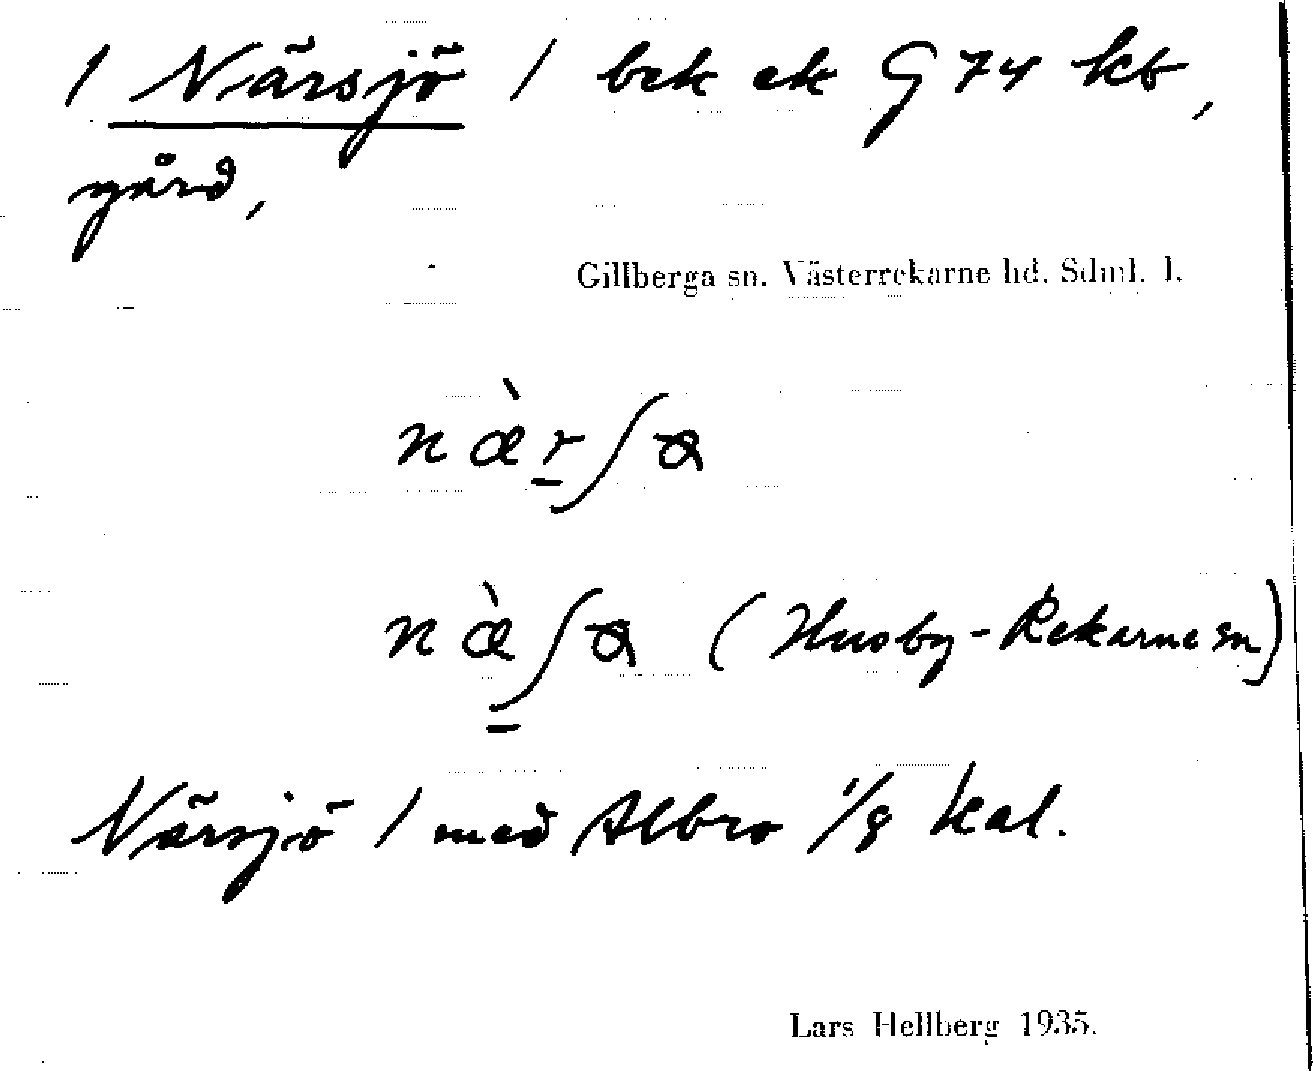 1 Närsjö 1 bek ek G 74 kb,
gård,
Gillberga sn. Västerrekarne hd. Sdml. l.
næ̀rʃɷ
næ̀ʃɷ (Husby-Rekarne sn)
Närsjö 1 med Albro 1/8 kal.
Lars Hellberg 1935.